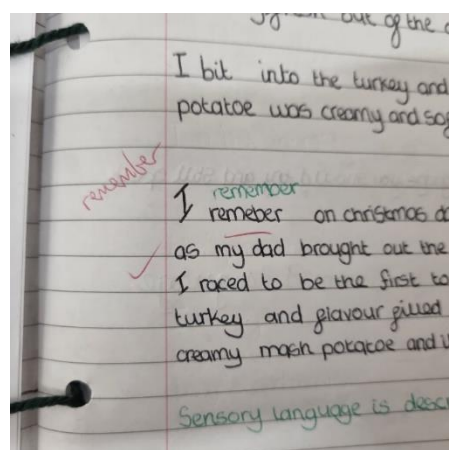 out of the
I bit into the turkey and
potatoe was creamy and
remember
remember
I remeber on christmas
as my dad brought out the
I raced to be the first to
turkey and flavour filled
creamy mash potatoe and
Sensory language is